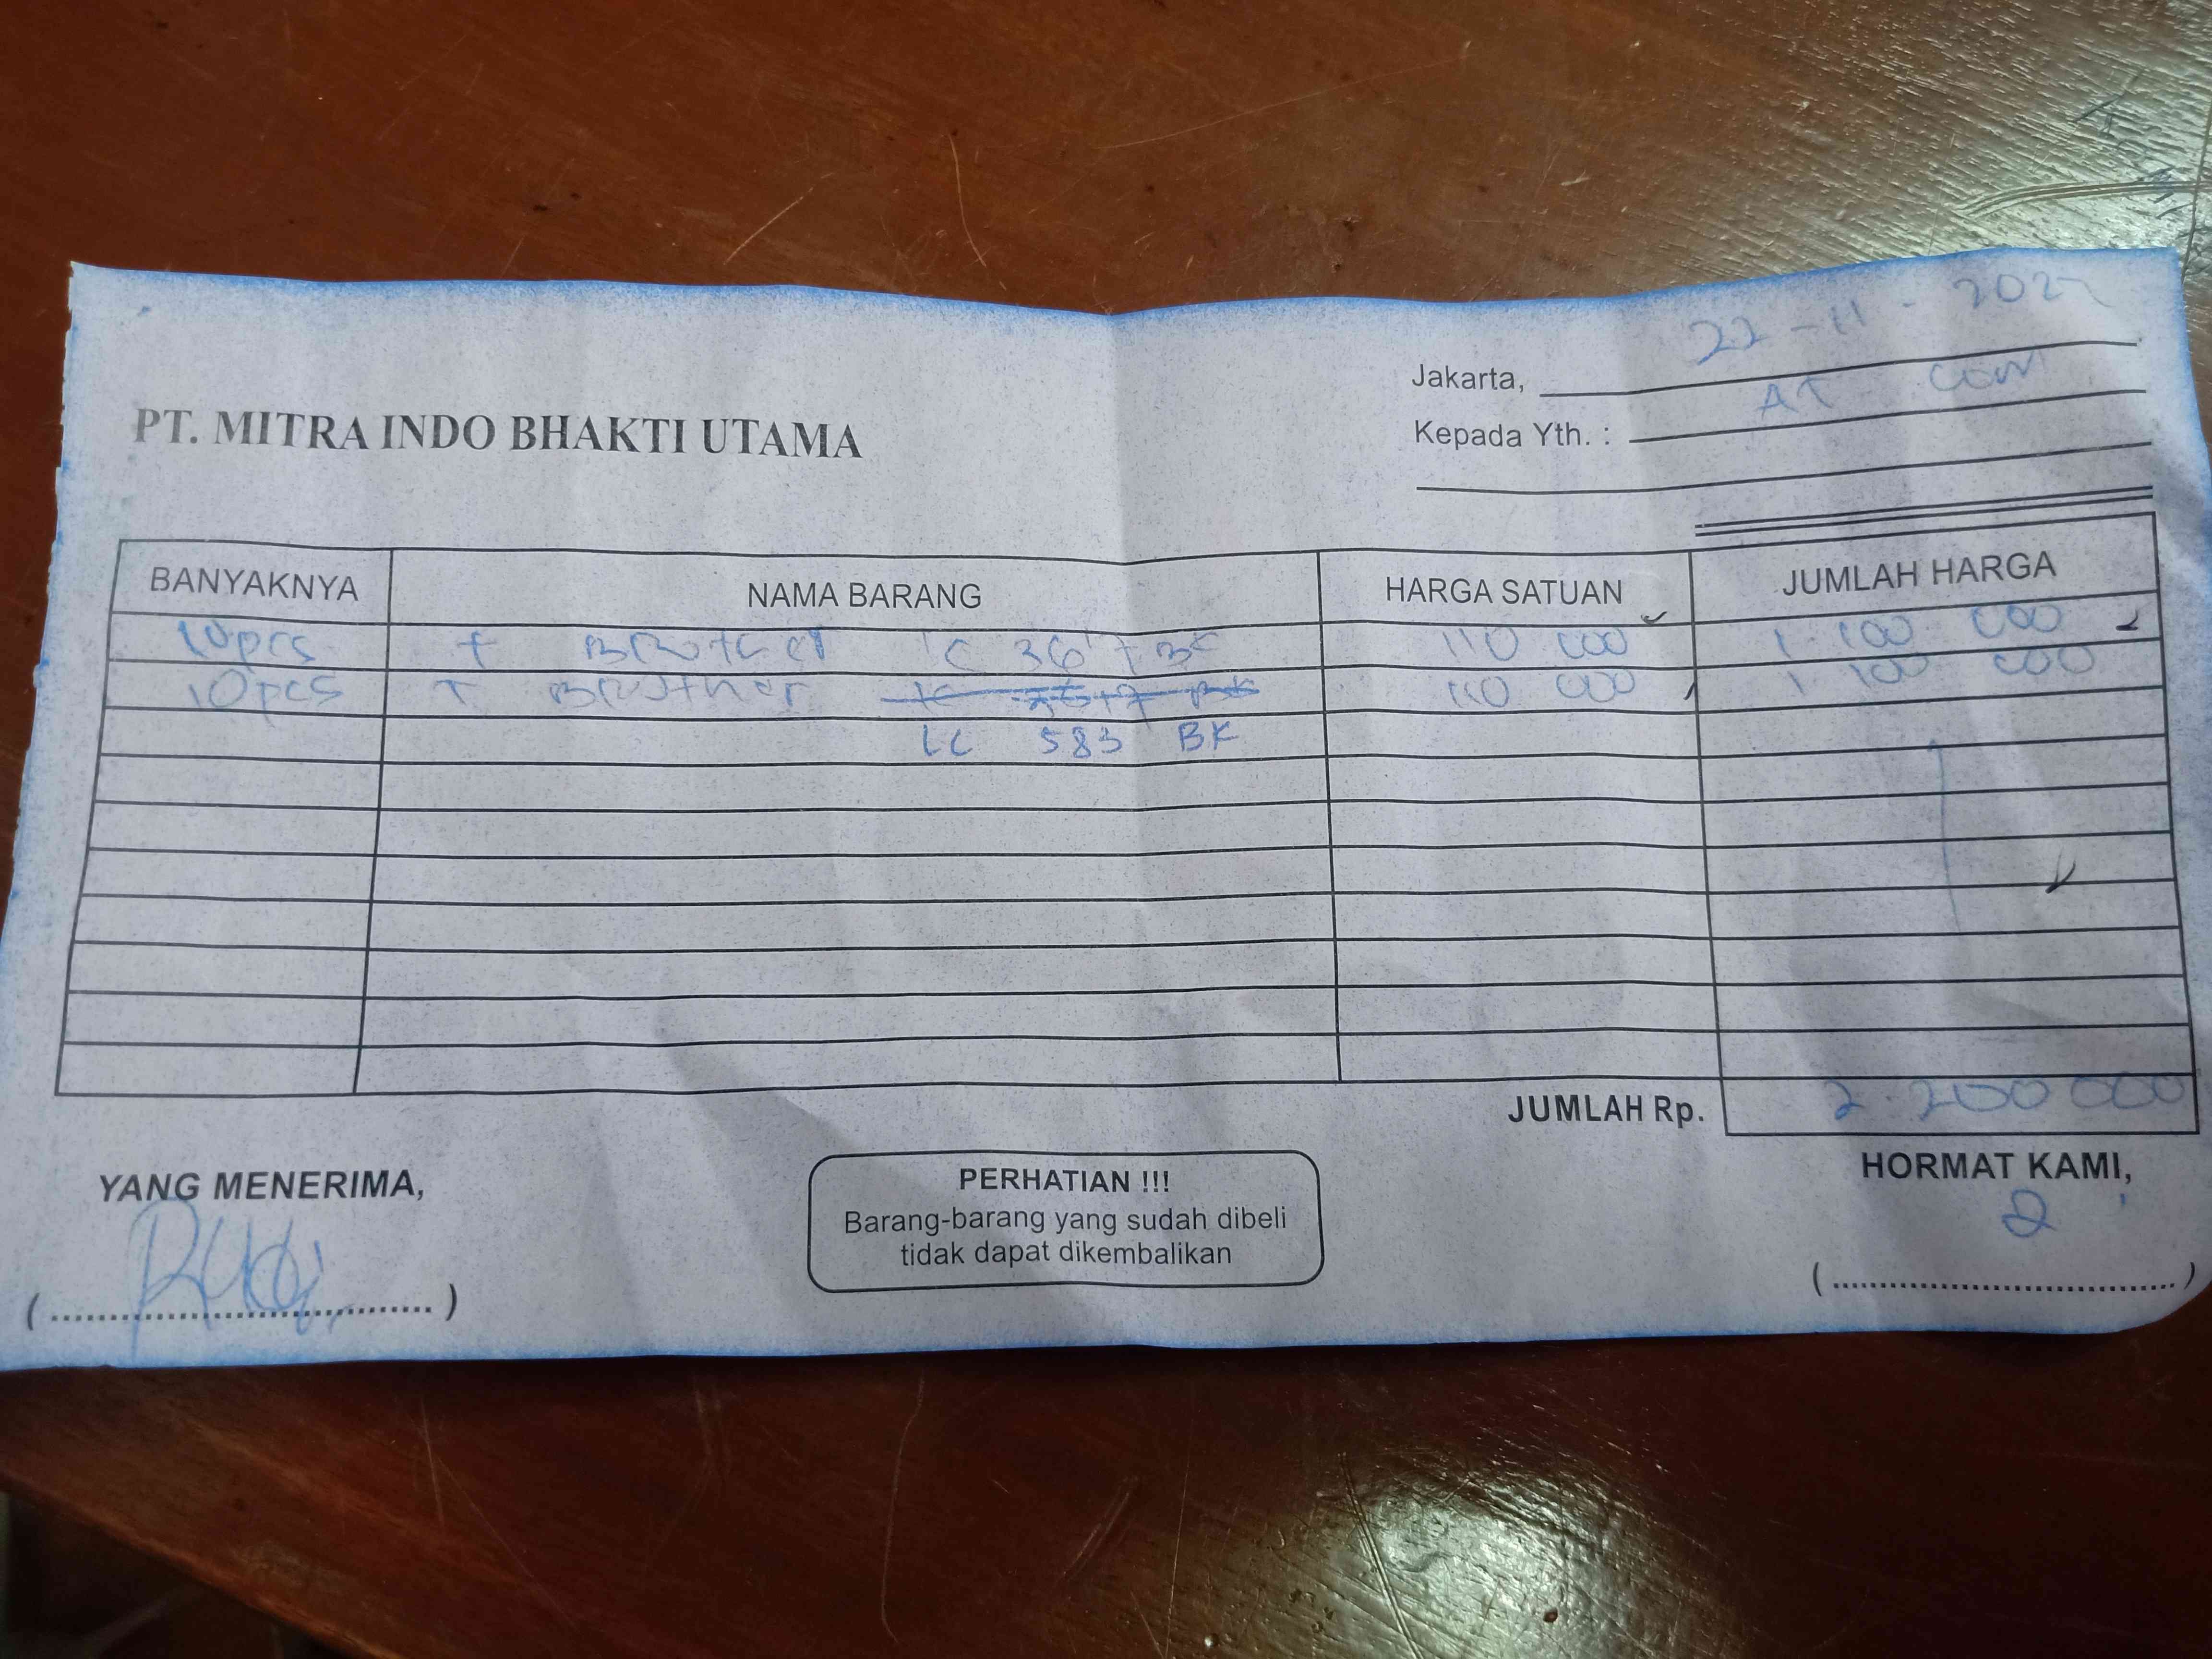 22-11-2022
Jakarta,
AT COM
Kepada Yth. :
PT. MITRA INDO BHAKTI UTAMA
BANYAKNYA NAMA BARANG HARGA SATUAN JUMLAH HARGA
10pcs T Brother LC 3617 BK 110 000 1 100 000
10pcs T Brother 110 000 1 100 000
LC 583 BK
JUMLAH Rp. 2.200 000
YANG MENERIMA,
PERHATIAN !!!
Barang-barang yang sudah dibeli
tidak dapat dikembalikan
HORMAT KAMI,